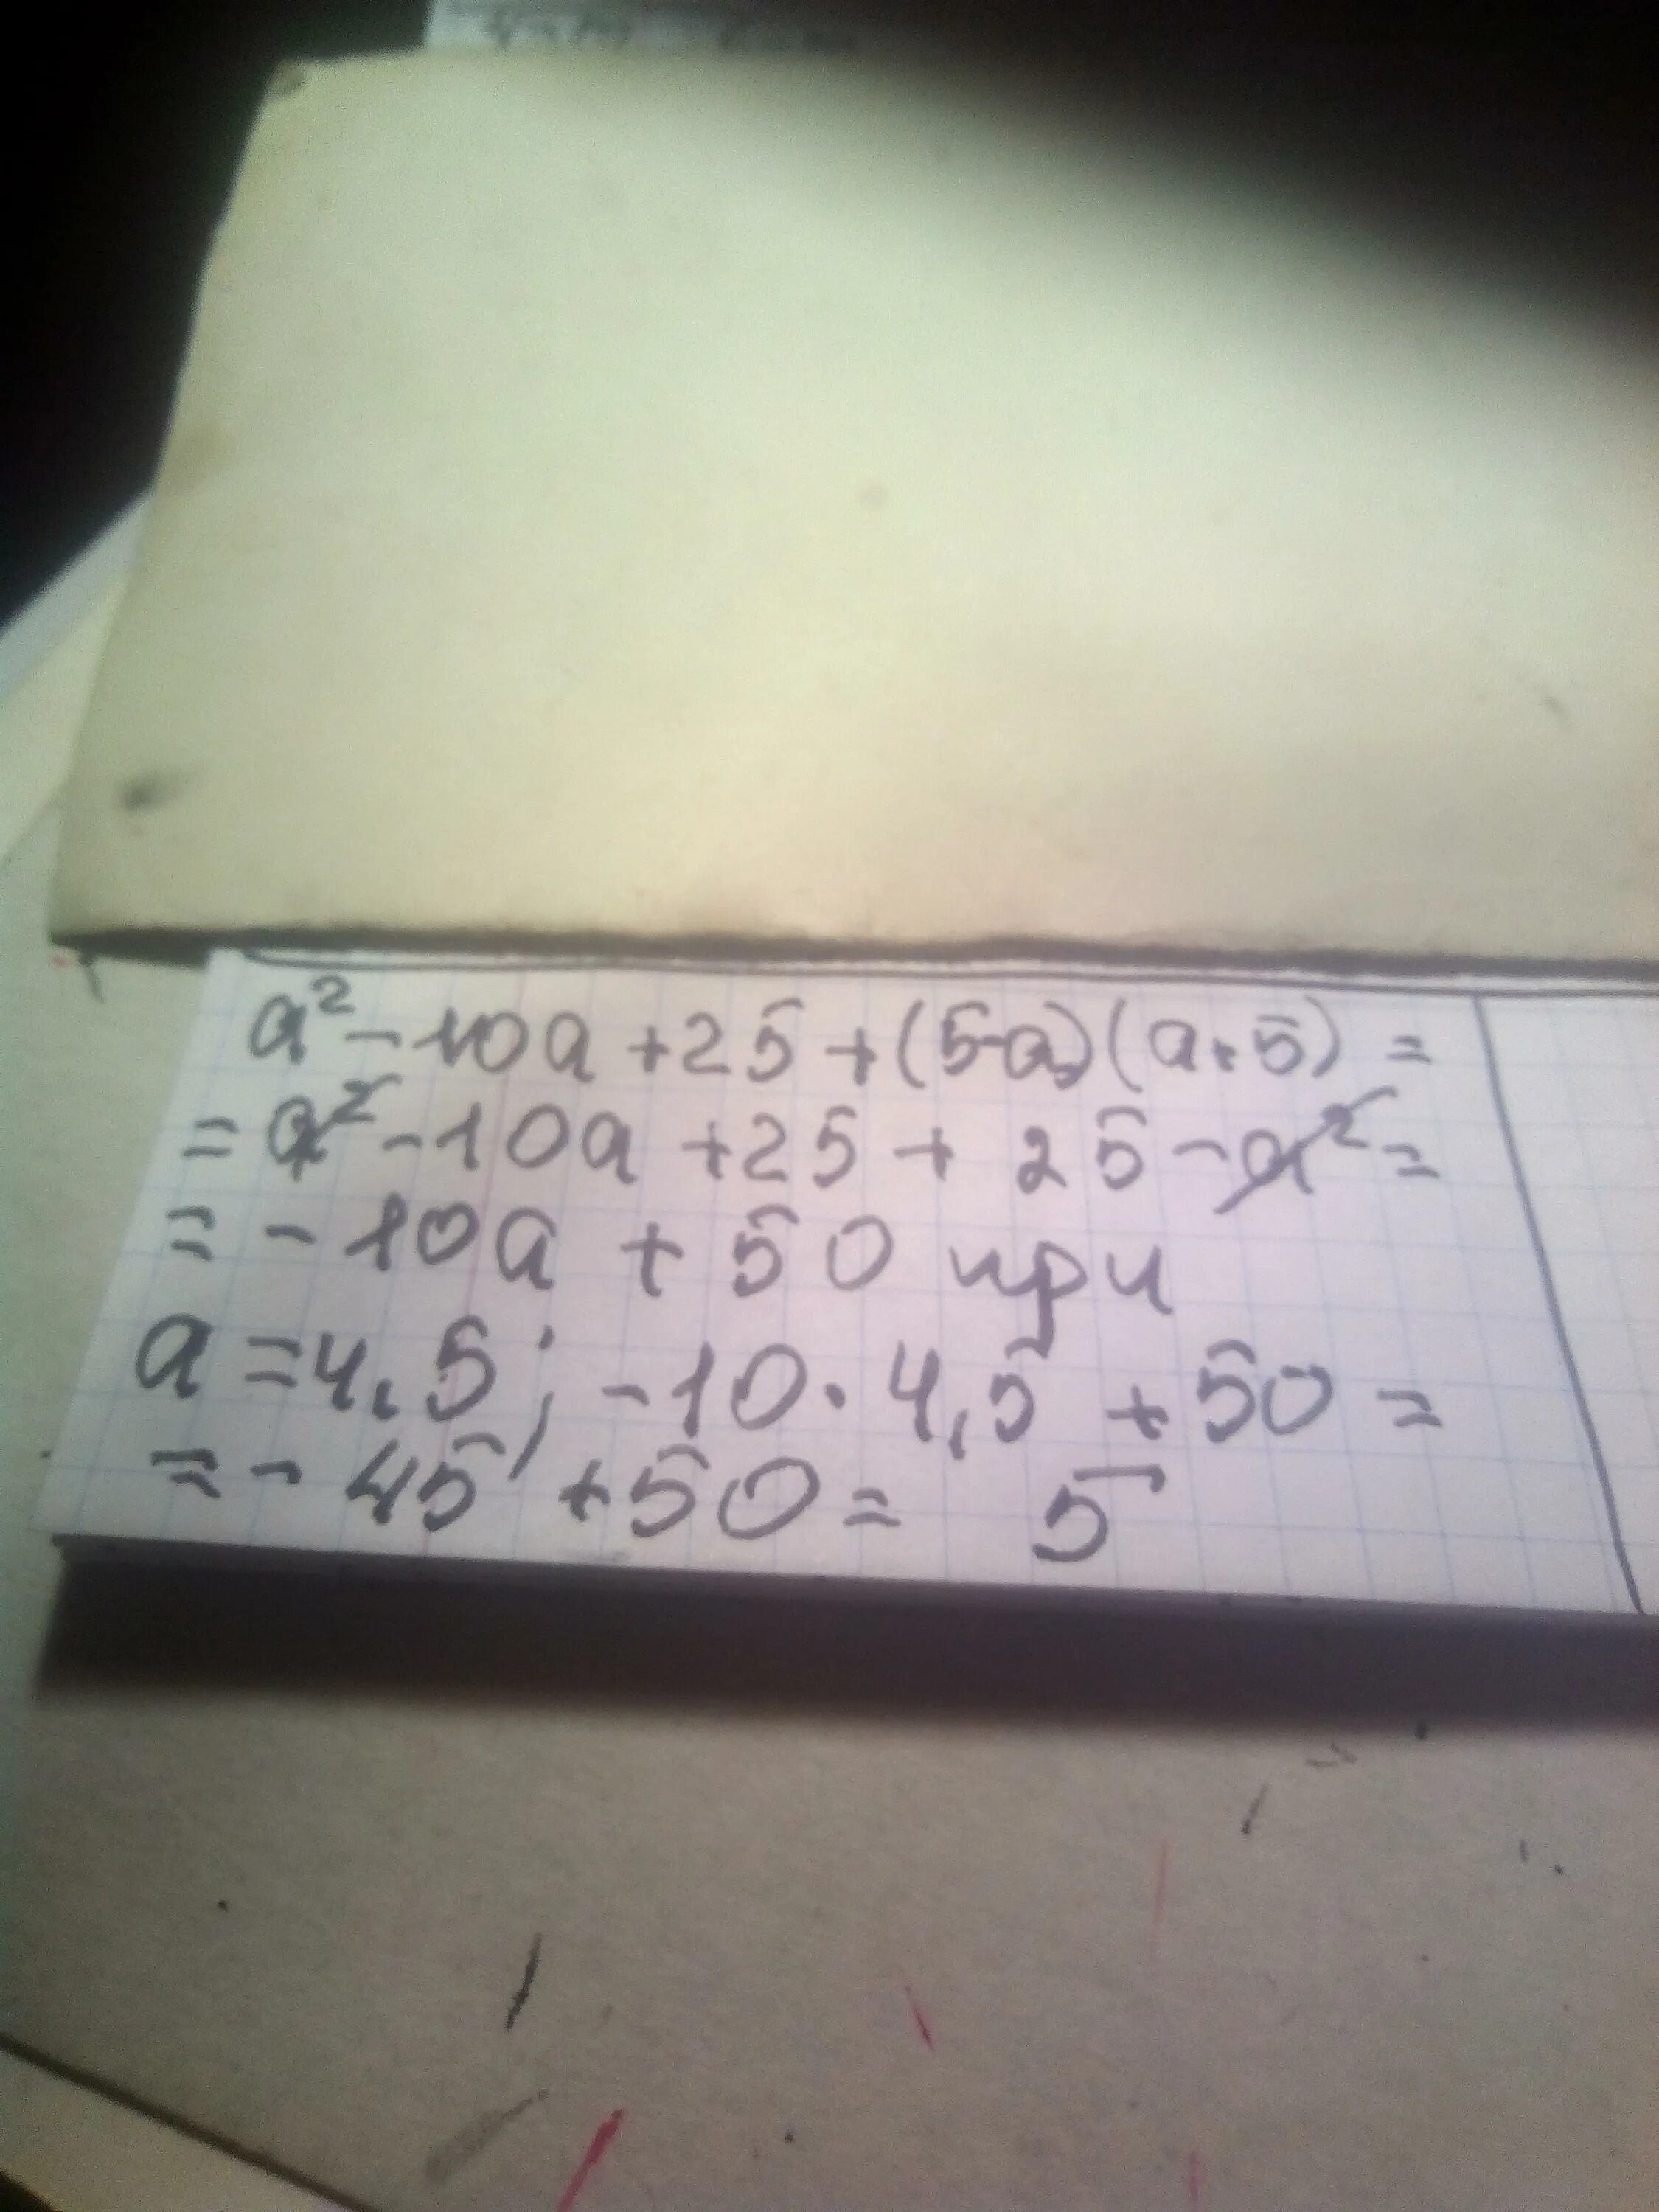 a² - 10a + 25 + (5-a)(a+5) =
= a² - 10a + 25 + 25 - a² =
= - 10a + 50 при
a = 4,5; - 10 · 4,5 + 50 =
= - 45 + 50 = 5